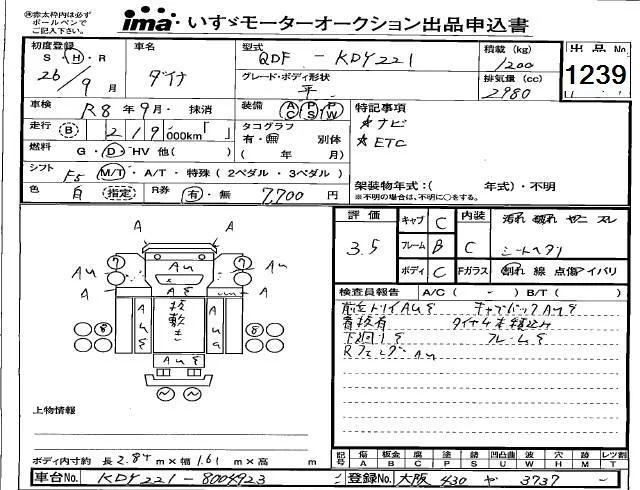 ㊟赤太枠内は必ず
ボールペンで
ご記入ください。
ima いすゞモーターオークション出品申込書
初度登録 S・H・R 26/9月
車名 ダイナ
型式 QDF - KDY221
グレード・ボディ形状 平
積載(kg) 1200
排気量(cc) 2980
出品No.
1239
車検 R8年9月・ 抹消
装備 AC PS PW
特記事項
☆ナビ
☆ETC
走行 B 219 000km「 」
タコグラフ 有・無 別体 ( 年 月)
燃料 G・D・HV 他( )
シフト F5 M/T・A/T・特殊(2ペダル・3ペダル)
架装物年式:( 年式)・不明
※不明の場合は、不明に○をする。
色 白 指定
R券 有・無 7,700円
評価 3.5
キャブ C
フレーム B
ボディ C
内装 C
汚れ 破れ ヤニ スレ
シートヘタリ
Fガラス 割れ 線 点傷 アイバリ
検査員報告 A/C( - ) B/T( )
キャブバックAu
下回りさ
フレームさ
Rフェンダー Au
A A
A A
Au Au Au
7 7
8 8
上物情報
ボディ内寸約 長2.84m×幅1.61m×高 m
記号 傷A 板金B 腐C 塗P 錆S 凹凸曲U 波W 穴H 跡M レツ割T
車台No. KDY221-8004923
登録No. 大阪 430 や 3737